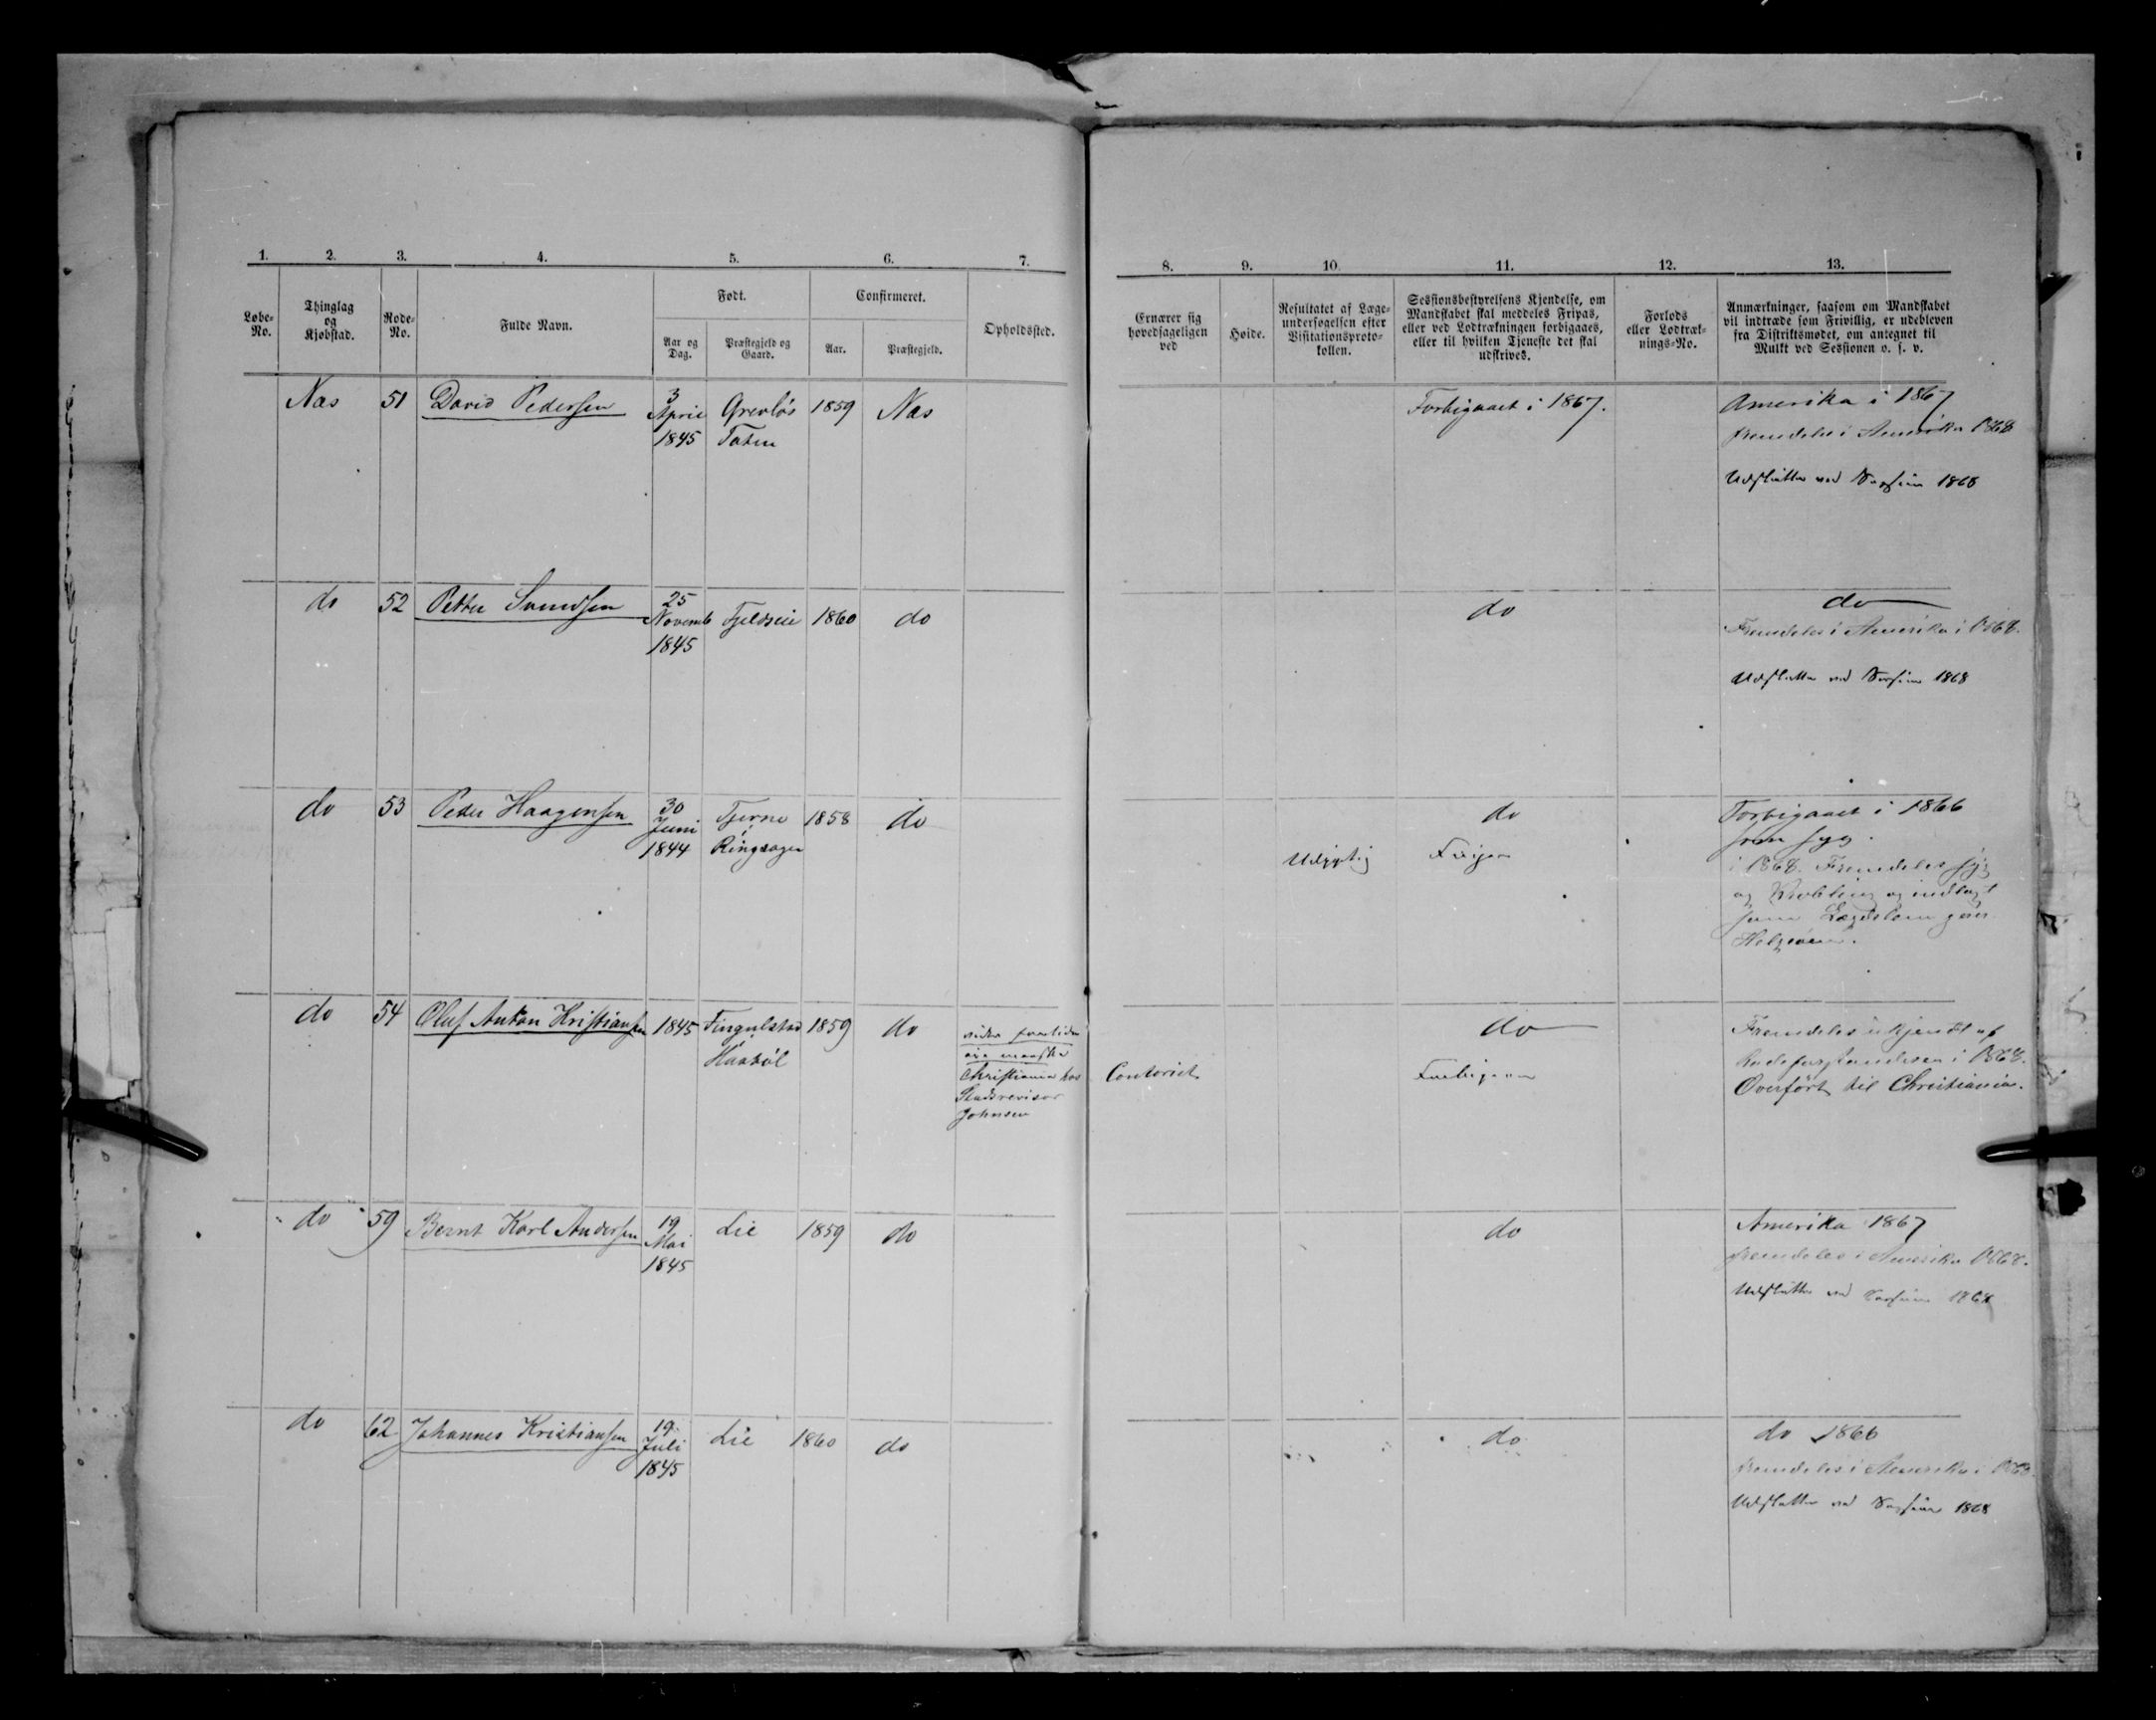 1. 2. 3. 4. 5. 6. 7. 8. 9. 10. 11. 12. 13.
Løbe-No.
Thinglag og Kjøbstad.
Rode-No.
Fulde Navn.
Født.
Aar og Dag.
Præstegjeld og Gaard.
Confirmeret.
Aar.
Præstegjeld.
Opholdssted.
Ernærer sig hovedsageligen ved
Høide.
Resultatet af Læge-undersøgelsen efter Visitationsproto-kollen.
Sessionsbestyrelsens Kjendelse, om Mandskabet skal meddeles Fripas, eller ved Lodtrækningen forbigaaes, eller til hvilken Tjeneste det skal udskrives.
Forlods eller Lodtræk-nings-No.
Anmærkninger, saasom om Mandskabet vil indtræde som Frivillig, er udebleven fra Distriktsmødet, om antegnet til Mulkt ved Sessionen o. s. v.
Næs 51 David Pedersen 3 April 1845 Grevløs Toten 1859 Næs
Forbigaaet i 1867.
Amerika i 1867
fremdeles i Amerika 1868
Udslettes ved Sessionen 1868
do 52 Petter Svendsen 25 Novemb 1845 Fjeldseie 1860 do
do
do
Fremdeles i Amerika i 1868.
Udslettes ved Sessionen 1868
do 53 Peder Haagensen 30 Juni 1844 Tjerne Ringsager 1858 do
Udygtig
do
Forbigaaet i 1866
som syg.
i 1868. Fremdeles syg
og Krøbling og indlagt
som Lægdslem paa
Helgøen.
do 54 Oluf Anton Kristiansen 1845 Fingulstad 1859 do
Christiania hos
Stadsrevisor
Johnsen
Contorist
do
Forbigaaes
Fremdeles ukjendt af
Rodeforstanderen i 1868.
Overført til Christiania.
do 59 Bernt Karl Andersen 19 Mai 1845 Lie 1859 do
do
Amerika 1867
fremdeles i Amerika 1868.
Udslettes ved Sessionen 1868
do 62 Johannes Kristiansen 19 Juli 1845 Lie 1860 do
do
do 1866
fremdeles i Amerika i 1868
Udslettes ved Sessionen 1868